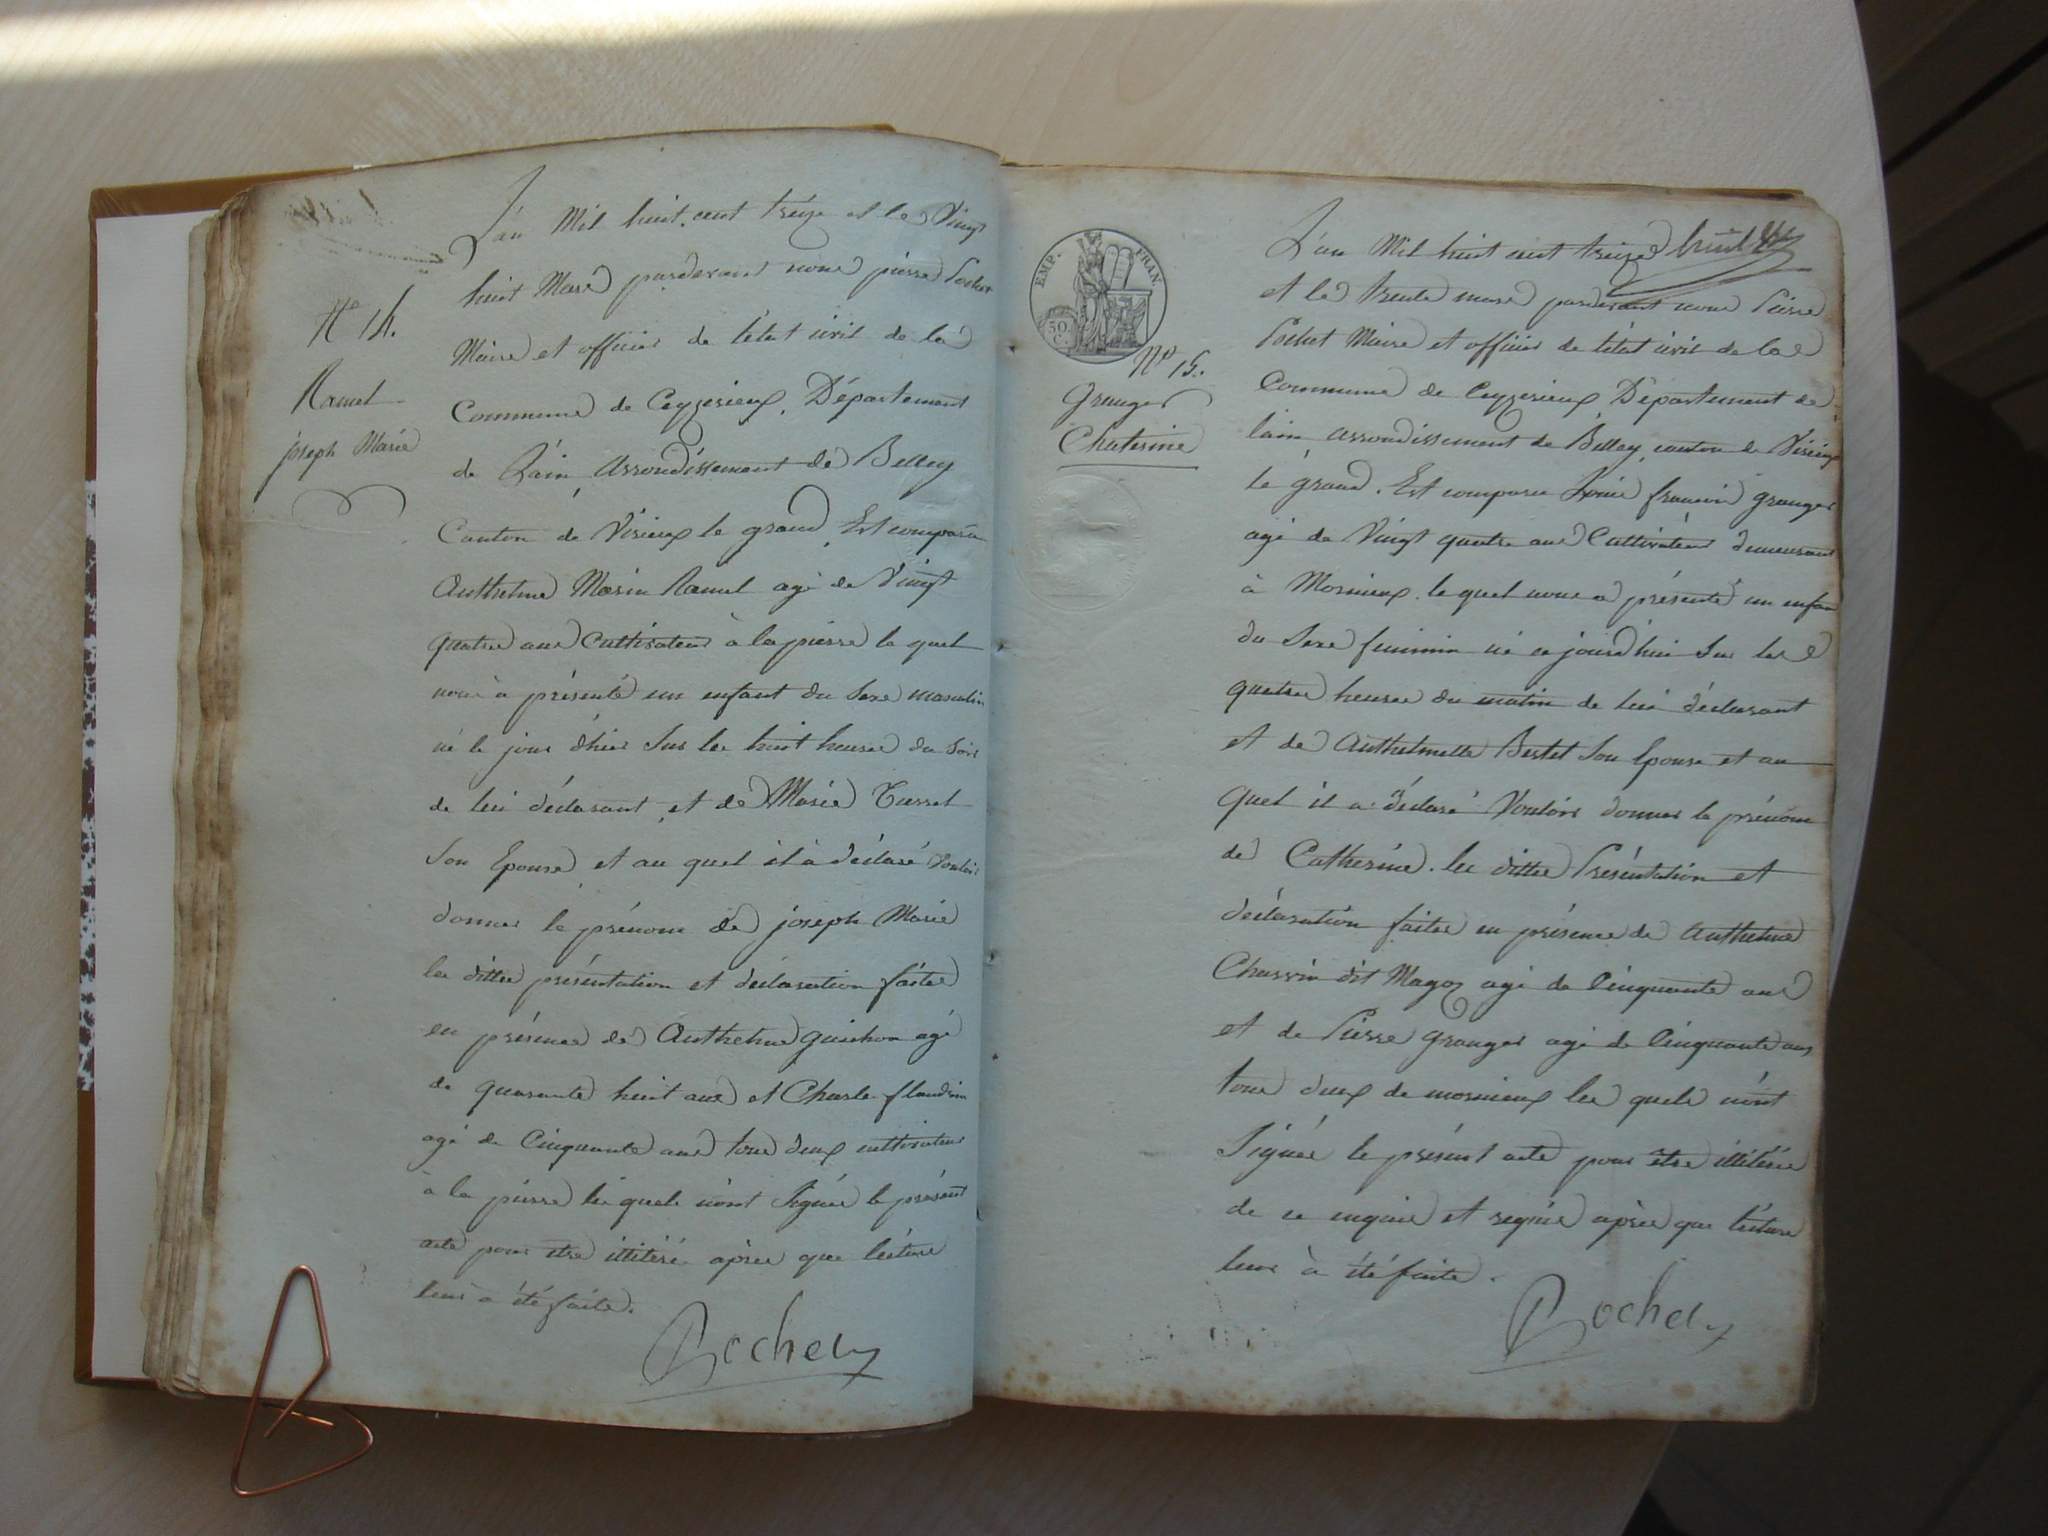 N° 14.
Ramel
joseph Marie
L'an Mil huit cent treize et le Vingt
huit Mars pardevant nous pierre Pochet
Maire et officier de l'état civil de la
Commune de Ceyzerieux, Département
de L'ain, Arrondissement de Belley
Canton de Virieux le grand, Est comparu
Anthelme Marin Ramel agé de Vingt
quatre ans Cultivateur à la pierre le quel
nous à présenté un enfant du Sexe masculin
né le jour d'hier Sur les huit heures du Soir
de lui déclarant, et de Marie Turrel
Son Epouse, et au quel il à déclaré Vouloir
donner le prénom de joseph Marie
les dittes présentation et déclaration faites
en présence de Anthelme guichon agé
de quarante huit ans et Charle flandrin
agé de Cinquante ans tous deux cultivateurs
à la pierre les quels n'ont Signés le présent
acte pour etre illitéré après que lécture
leur à été faite.
Pochet
EMP. FRAN.
50 C.
N° 15.
Granger
Chaterine
L'an Mil huit cent treize huit
et le trente mars pardevant nous Pierre
Pochet Maire et officier de l'état civil de la
Commune de Ceyzerieux Département de
l'ain, arrondissement de Belley, canton de Virieux
le grand. Est comparu Louis francois granger
agé de Vingt quatre ans Cultivateur demeurant
à Mornieux. le quel nous a présenté un enfan
du Sexe feminin né ce jourd'hui Sur les
quatre heures du matin de lui déclarant
et de Anthelmette Bertet Son Epouse et au
quel il a déclaré Vouloir donner le prénom
de Catherine. les dittes Présentation et
déclaration faites en présence de Anthelme
Charvin dit Magoz agé de Cinquante ans
et de Pierre granger agé de Cinquante ans
tous deux de mornieux les quels n'ont
Signés le présent acte pour être illitérés
de ce enquis et requis après que lécture
leur à été faite.
Pochet